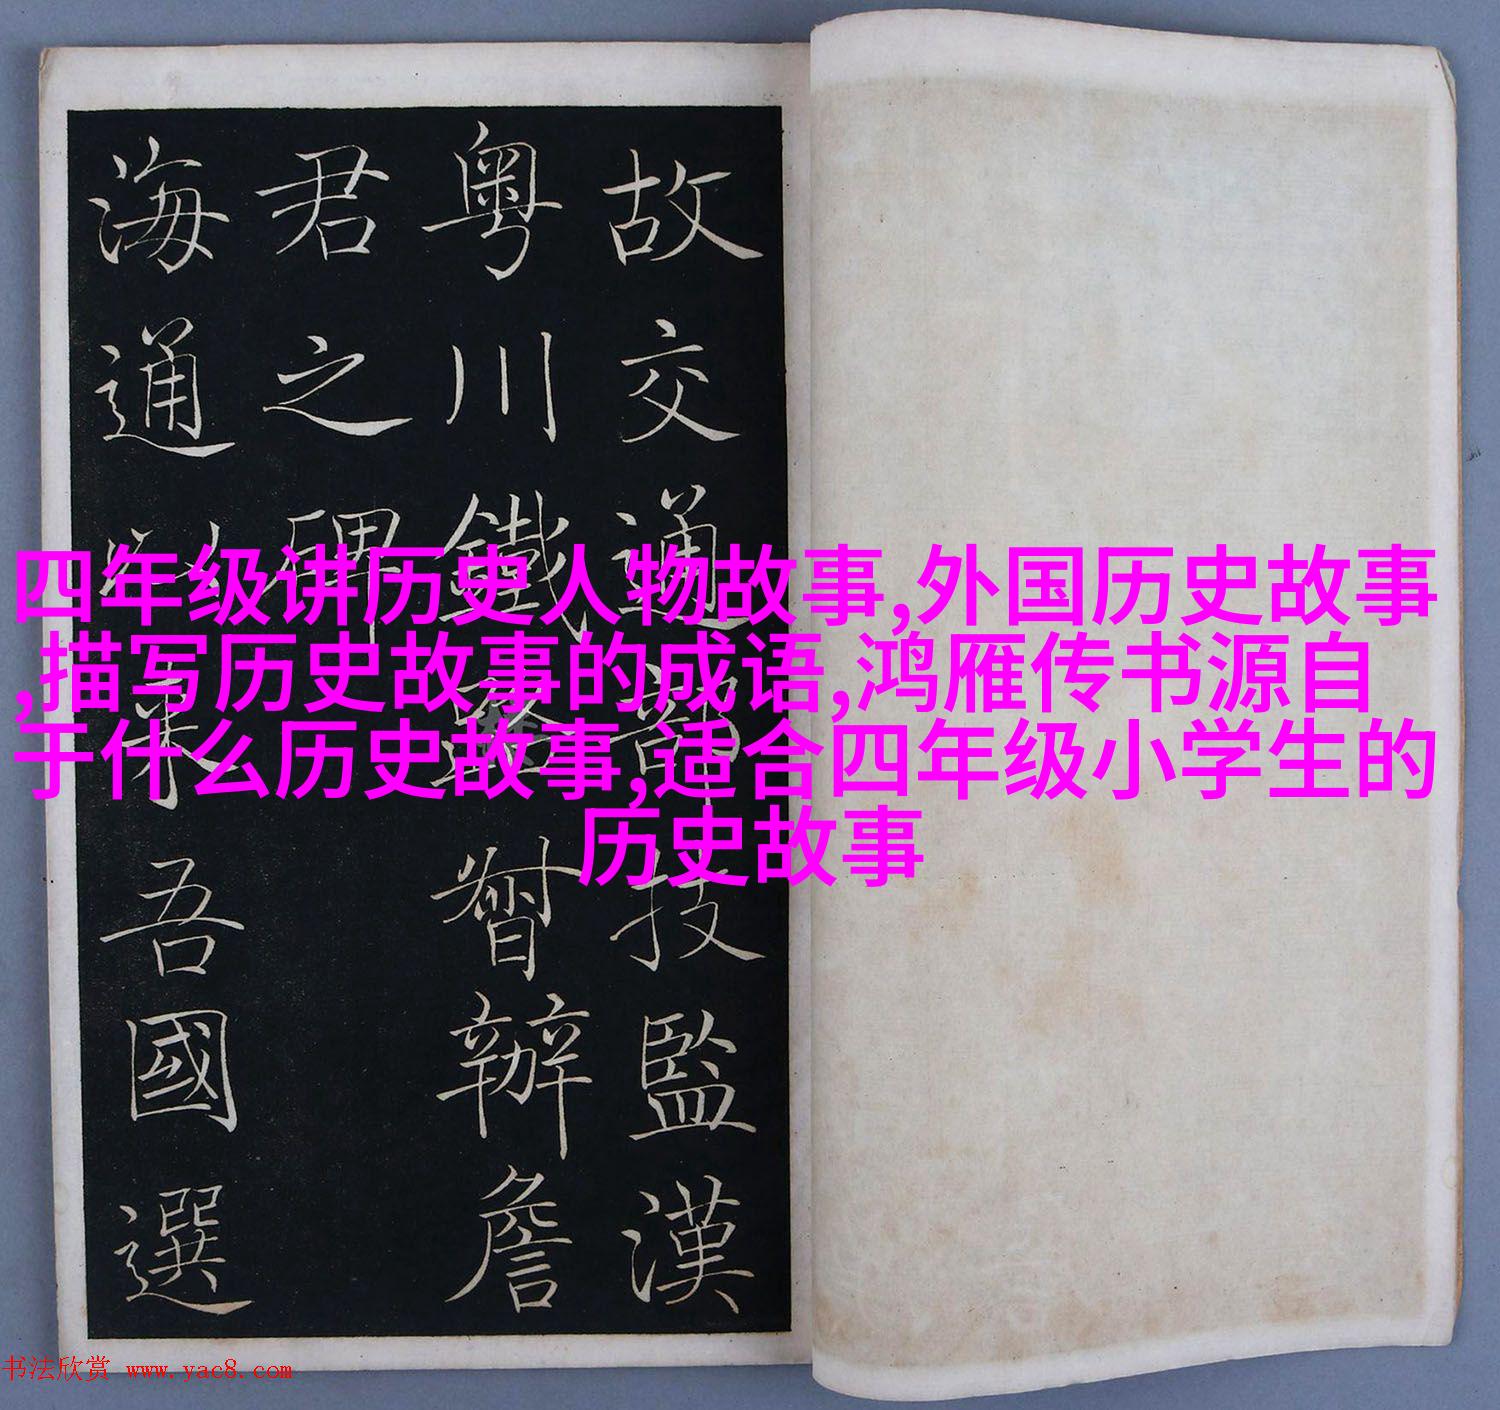 故交通部技監漢
粵川鐵路督辦詹
君之碑
海通以來吾國選
四年级讲历史人物故事,外国历史故事
,描写历史故事的成语,鸿雁传书源自
于什么历史故事,适合四年级小学生的
历史故事
书法欣赏 www.yac8.com